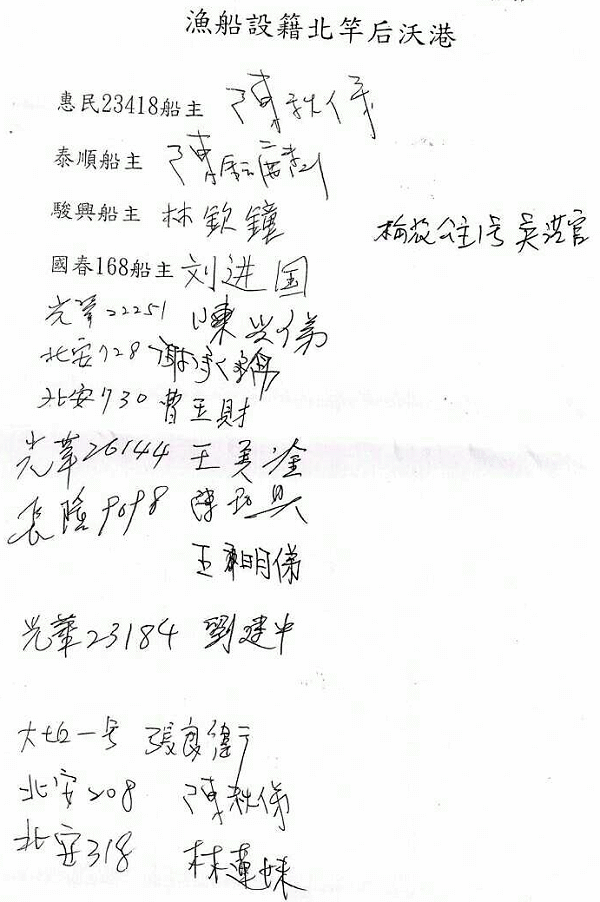 漁船設籍北竿后沃港
惠民23418船主 陳秋俤
泰順船主 陳
駿興船主 林欽鑲
梅花公主1号 吳浩官
國春168船主 刘进国
光華22251 陳兴俤
北安728 謝承
北安730 曹玉財
光華26144 王美金
長隆9098 陳
王 明俤
光華23184 劉建中
大 一号 張良衛
北安208 陳秋俤
北安318 林蓮妹